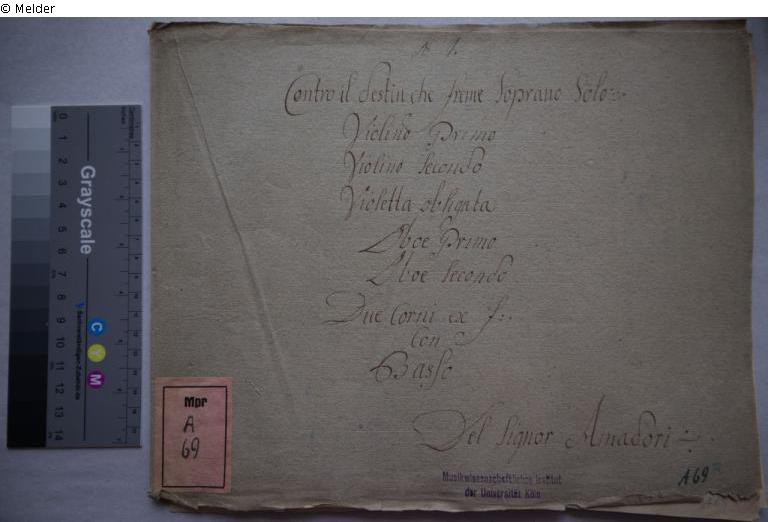 © Melder
N 1.
Contro il destin che freme Soprano Solo
Violino Primo
Violino Secondo
Violetta obligata
Aboe Primo
Aboe Secondo
Due Corni ex f:
Con
Basso
Del Signor Amadori
Mpr
A
69
Musikwissenschaftliches Institut
der Universität Köln
A69
Grayscale
C
Y
M
0
1
2
3
4
5
6
7
8
9
10
11
12
13
14